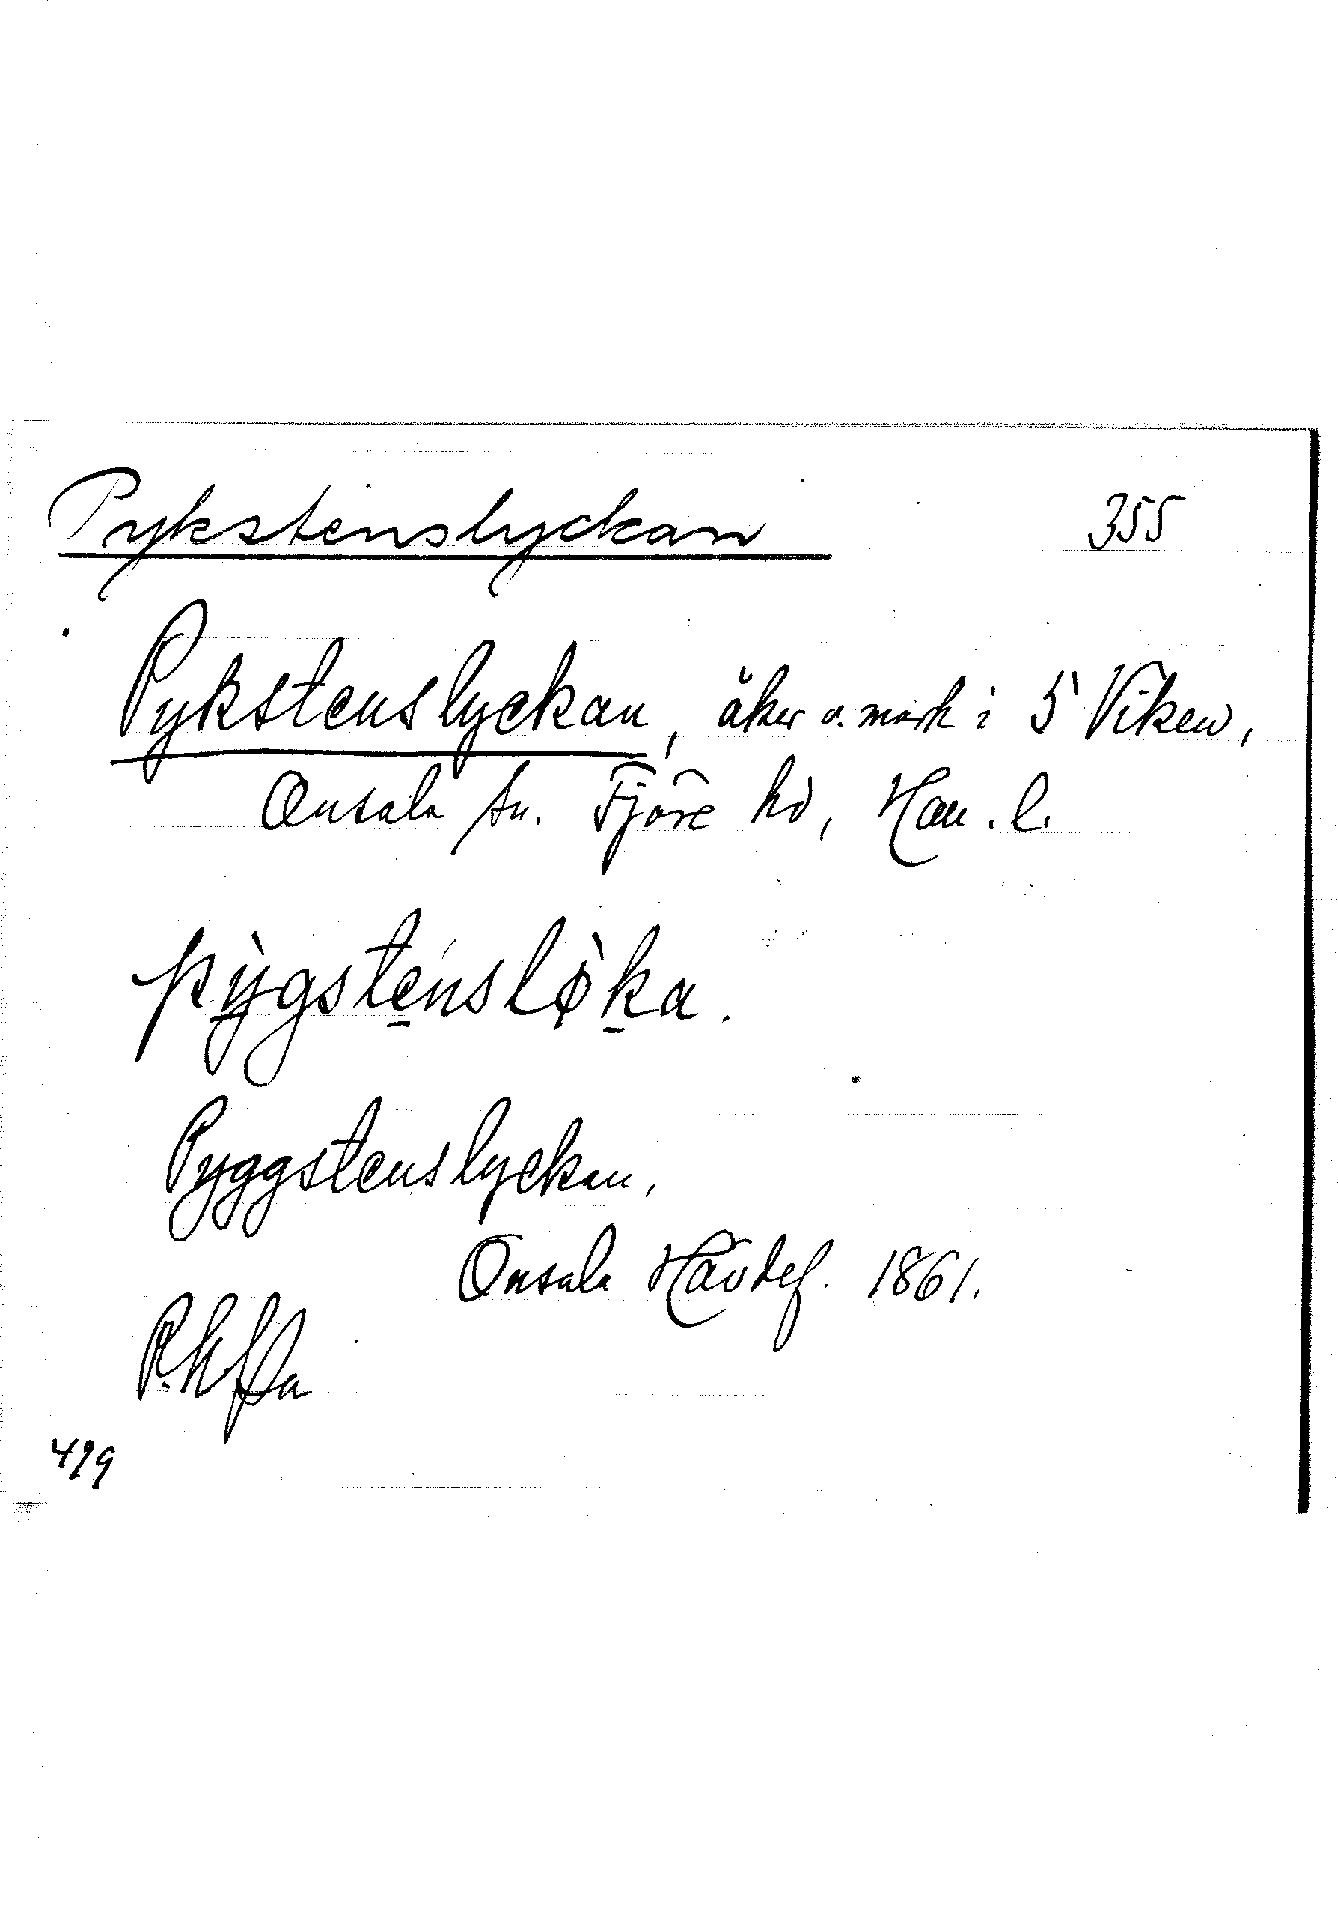 Pykstenslyckan 355
Pykstenslyckan, åker o. mark i 5 Viken,
Onsala sn. Fjäre hd, Hall. l.
pỳgstensløka.
Pyggstenslyckan,
Onsala Hävdef. 1861.
419